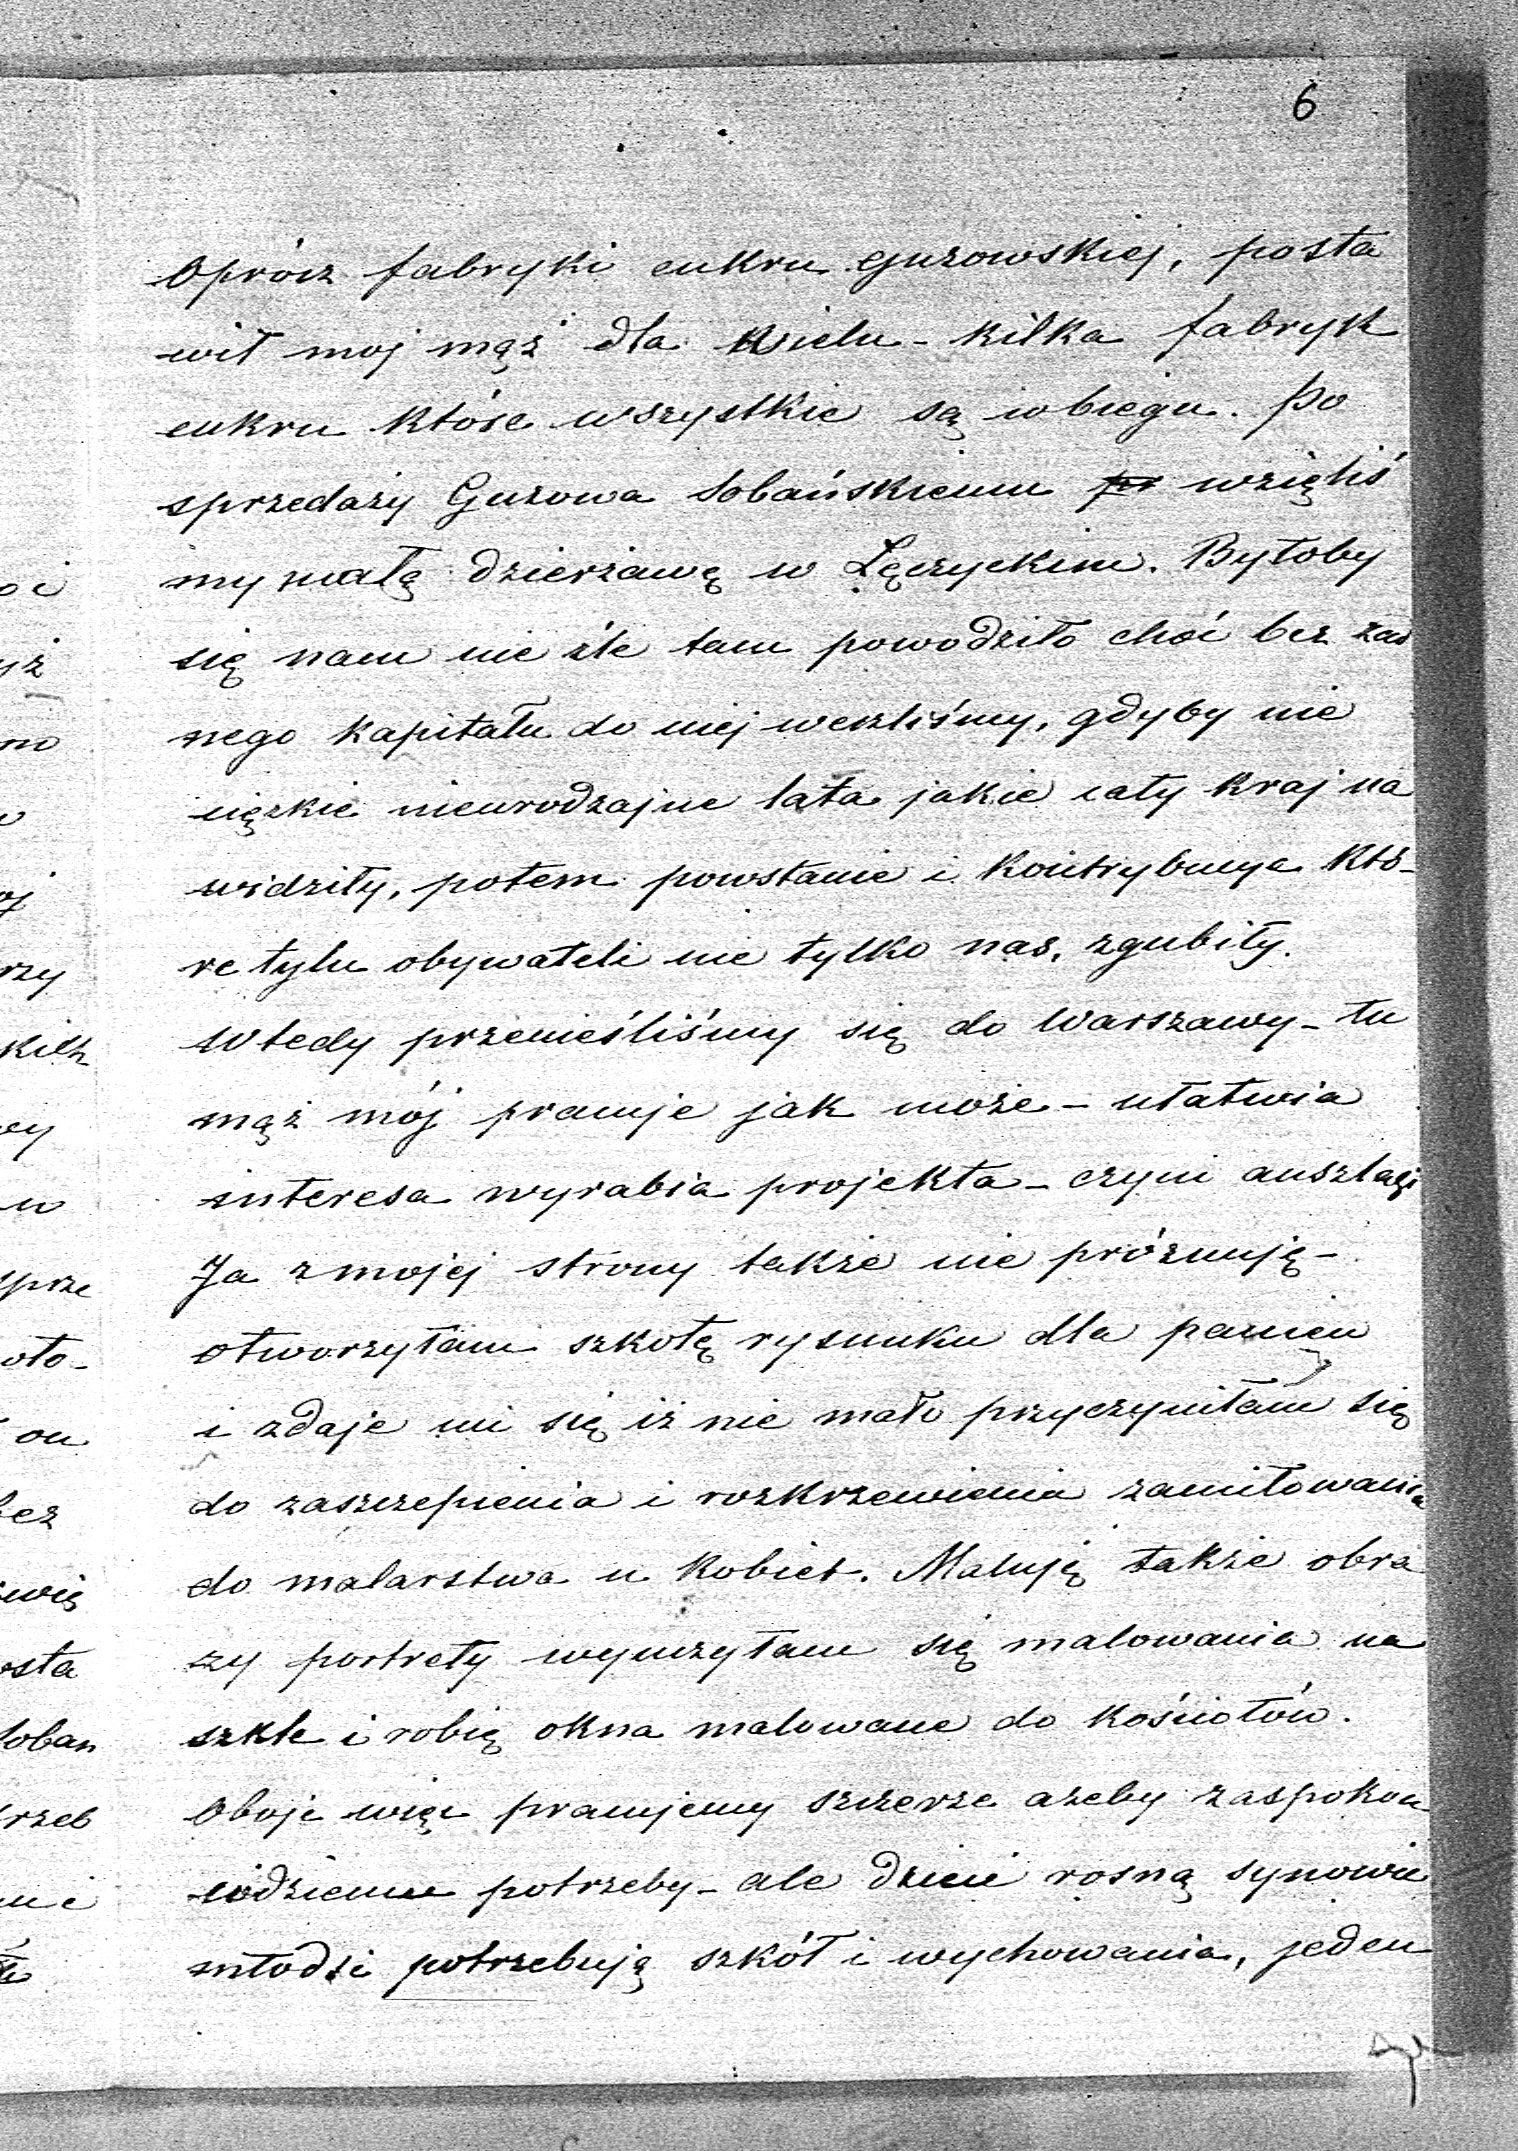 6
Oprócz fabryki cukru guzowskiej, posta
wił moj mąż dla wielu - kilka fabryk
cukru które wszystkie są w biegu. Po
sprzedaży Guzowa Sobańskiemu wzięliś
my małą dzierżawę w Łęczyckim. Byłoby
się nam nie źle tam powodziło choć bez żad
nego kapitału do niej weszliśmy, gdyby nie
ciężkie nieurodzajne lata jakie cały kraj na
widziły, potem powstanie i kontrybucye któ-
re tylu obywateli nie tylko nas, zgubiły.
Wtedy przenieśliśmy się do Warszawy - tu
mąż mój pracuje jak może - ułatwia
interesa wyrabia projekta - czyni anszlagi
Ja z mojej strony także nie próżnuję -
otworzyłam szkołę rysunku dla panien
i zdaje mi się iż nie mało przyczyniłam się
do zaszczepienia i rozkrzewienia zamiłowania
do malarstwa u kobiet. Maluję także obra
zy portrety wyuczyłam się malowania na
szkle i robię okna malowane do kościołów.
Oboje więc pracujemy szczerze ażeby zaspokoić
codzienne potrzeby - ale dzieci rosną synowie
młodsi potrzebują szkół i wychowania, jeden
oi
yż
mo
w
oj
rzy
kich
ey
w
sprze
oto-
on
bez
wię
osta
Soban
trzeb